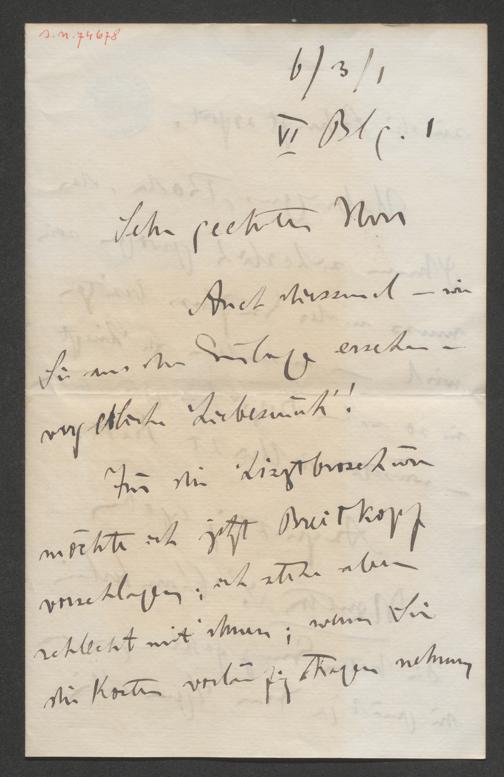 s.n. 74678
6/3/1
VI Blg. 1
Sehr geehrter Herr
Auch diesmal – wie
Sie aus der Einlage ersehen –
vergebliche 'Liebesmüh'!
Für die Lisztbroschüre
möchte ich jetzt Breitkopf
vorschlagen; ich stehe aber
schlecht mit ihnen; wenn Sie
die Karten vorläufig tragen nehmen